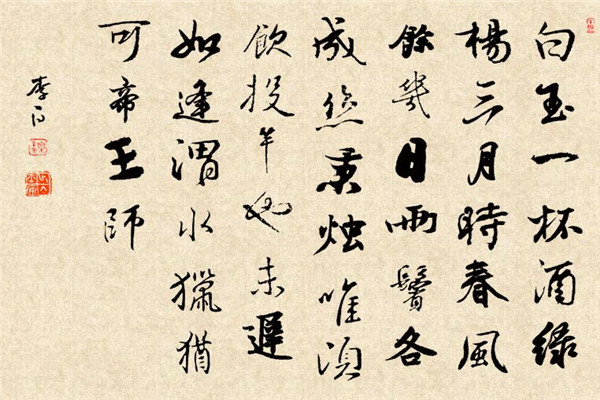 白玉一杯酒綠
楊三月時春風
餘幾日兩鬢各
成絲秉烛唯須
飲投竿也未遲
如逢渭水獵猶
可帝王師
李白